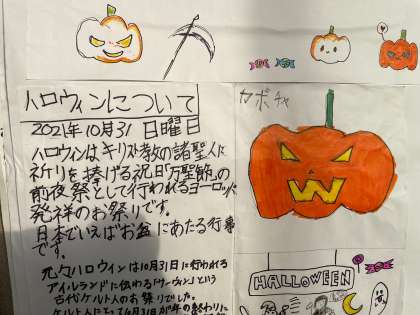 ハロウィンについて
2021年10月31 日曜日
ハロウィンは、キリスト教の諸聖人に
祈りを捧げる祝日「万聖節」の
前夜祭として行われるヨーロッパ
発祥のお祭りです。
日本でいえば「お盆」にあたる行事
です。
元々ハロウィンは10月31日に行われる
アイルランドに伝わる「サーウィン」という
古代ケルト人のお祭りでした。
カボチャ
HALLOWEEN